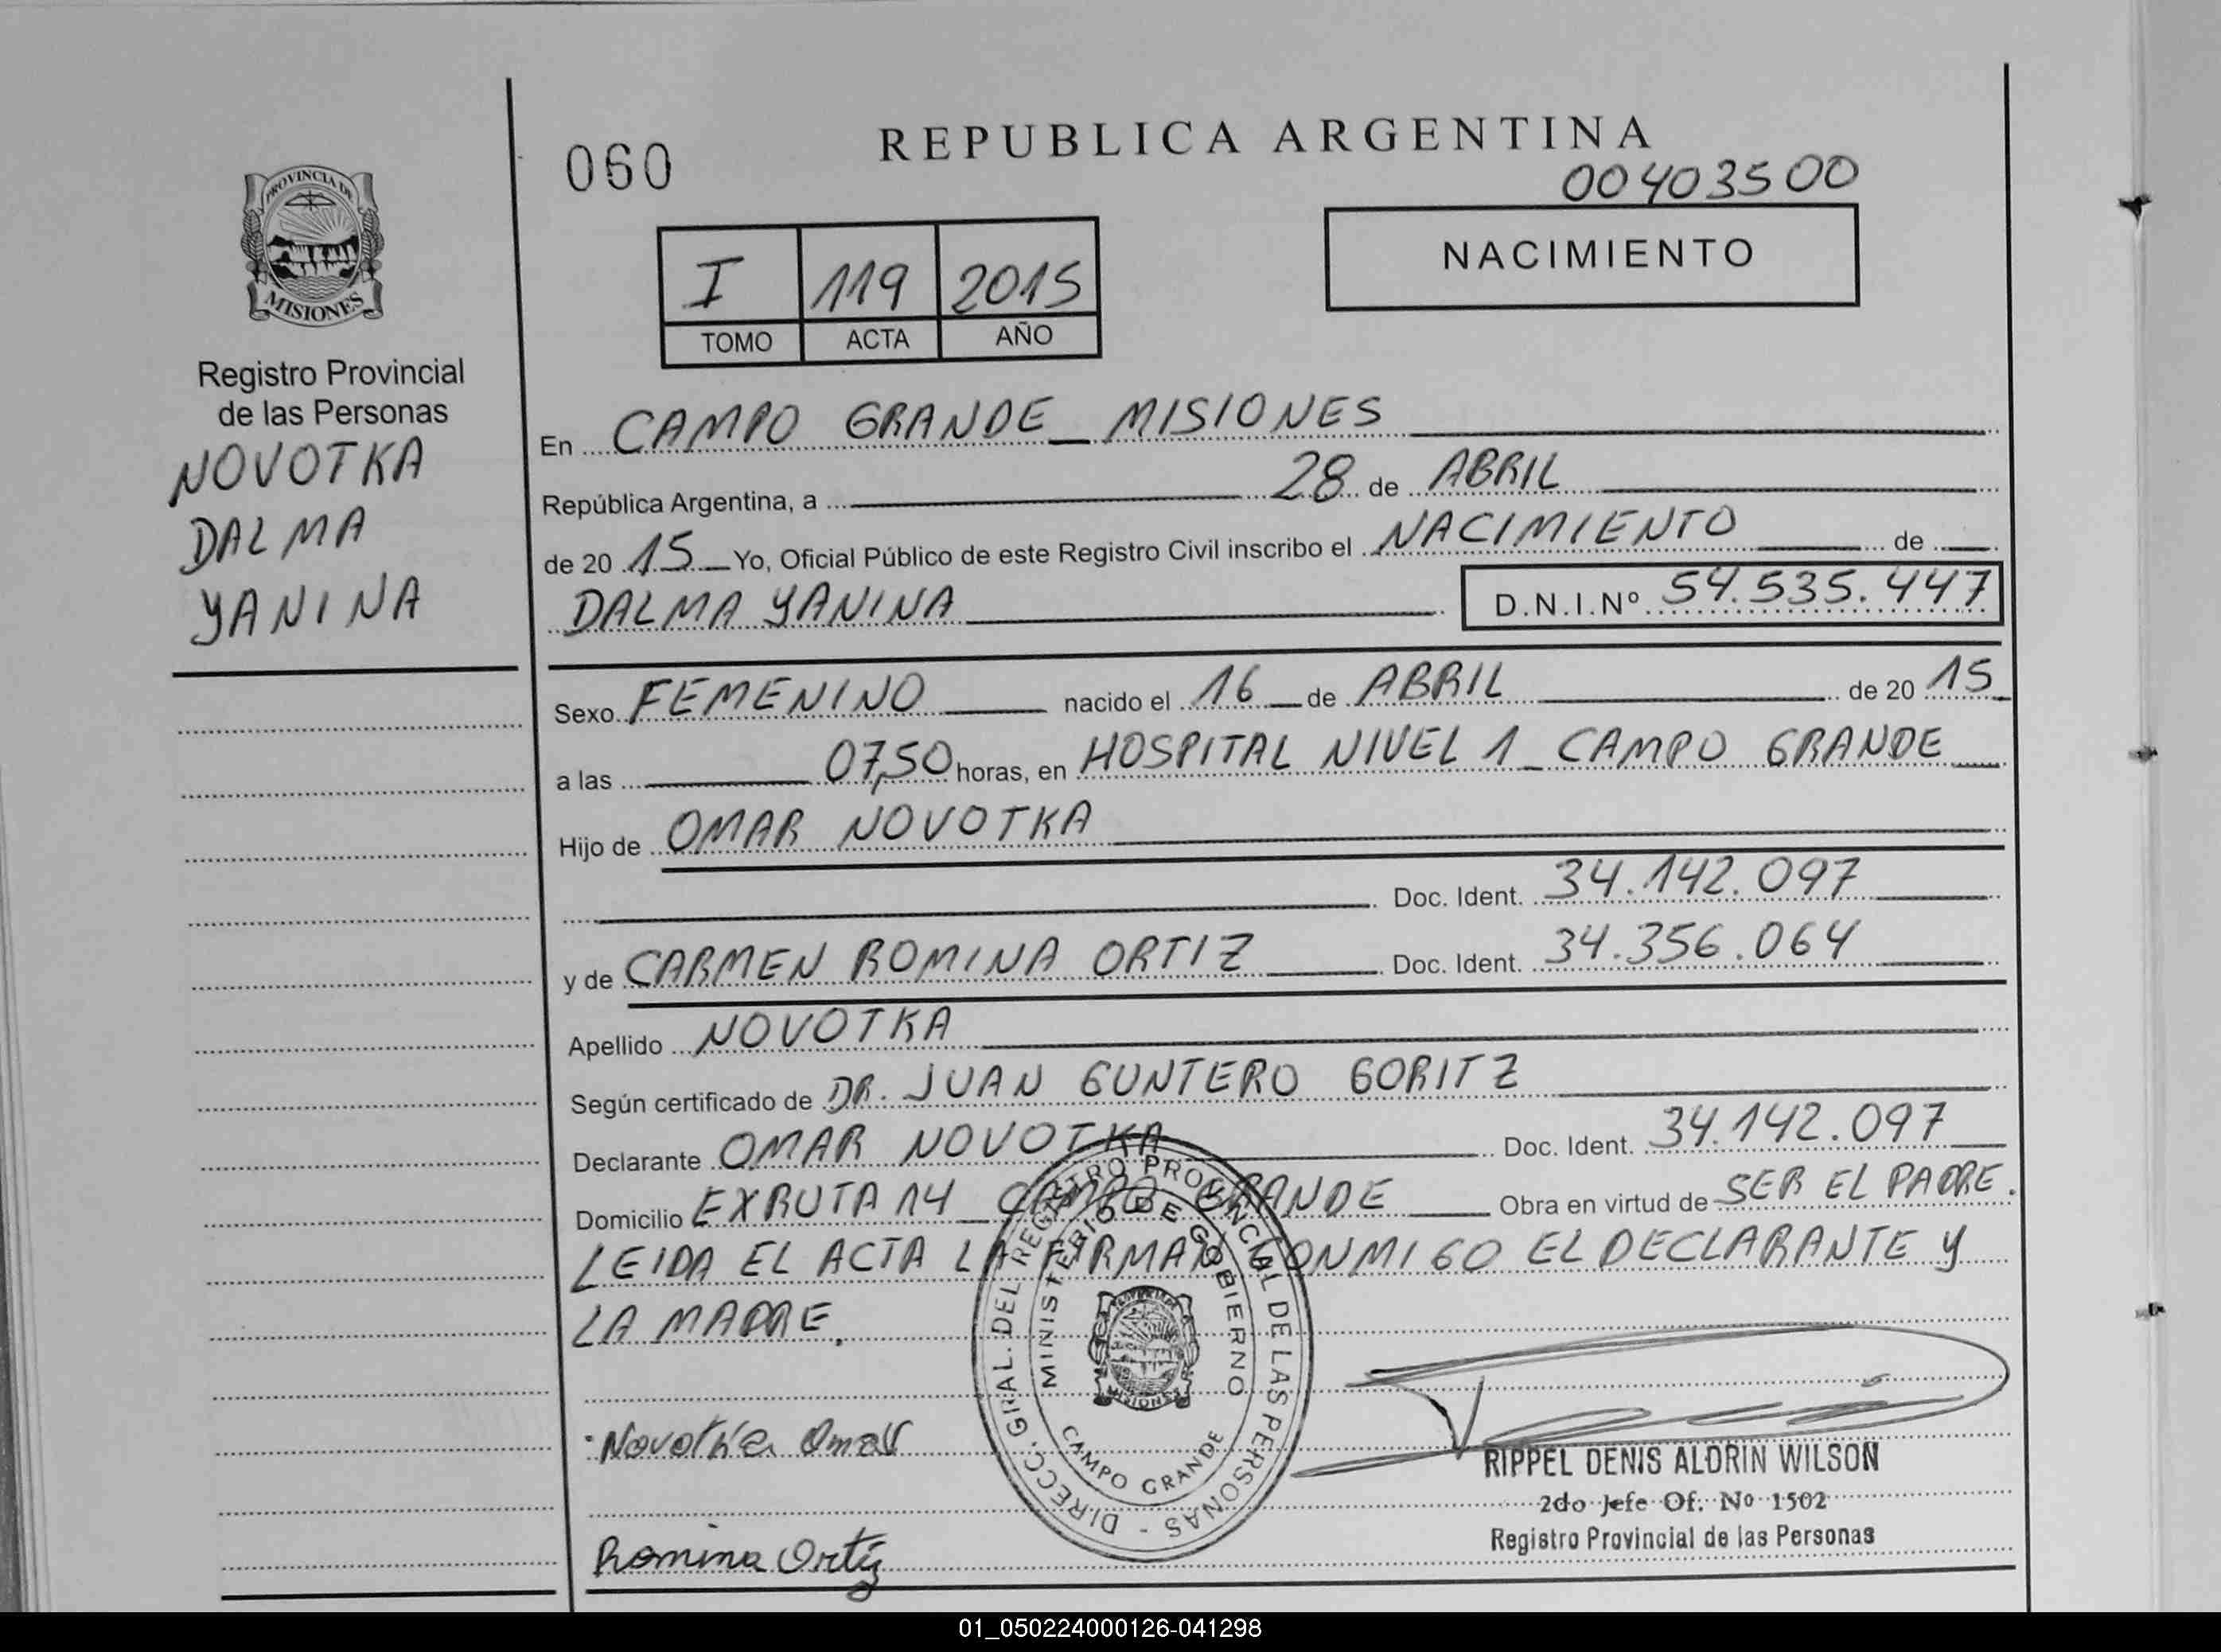 PROVINCIA DE
MISIONES
Registro Provincial
de las Personas
NOVOTKA
DALMA
YANINA
060
REPUBLICA ARGENTINA
00403500
NACIMIENTO
I 119 2015
TOMO ACTA AÑO
En CAMPO GRANDE _ MISIONES
República Argentina, a 28 de ABRIL
de 20 15 Yo, Oficial Público de este Registro Civil inscribo el NACIMIENTO de
DALMA YANINA D.N.I.Nº 54.535.447
Sexo FEMENINO nacido el 16 de ABRIL de 20 15
a las 07,50 horas, en HOSPITAL NIVEL 1 _ CAMPO GRANDE
Hijo de OMAR NOVOTKA
Doc. Ident. 34.142.097
y de CARMEN ROMINA ORTIZ Doc. Ident. 34.356.064
Apellido NOVOTKA
Según certificado de DR. JUAN GUNTERO GORITZ
Declarante OMAR NOVOTKA Doc. Ident. 34.142.097
Domicilio EXRUTA 14 _ CAMPO GRANDE Obra en virtud de SER EL PADRE.
LEIDA EL ACTA LA FIRMAN CONMIGO EL DECLARANTE Y
LA MADRE.
DIRECC. GRAL. DEL REGISTRO PROVINCIAL DE LAS PERSONAS -
MINISTERIO DE GOBIERNO
MISIONES
CAMPO GRANDE
Novotka Omar
Romina Ortiz
RIPPEL DENIS ALDRIN WILSON
2do Jefe Of. Nº 1502
Registro Provincial de las Personas
01_050224000126-041298